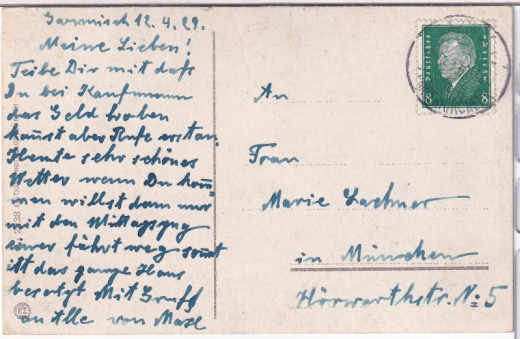 Garmisch 12.4.29.
Meine Lieben!
Teile Dir mit daß
Du bei Kaufmann
das Geld haben
kannst aber Rufe erst an.
Heute sehr schönes
Wetter wenn Du kom̄
men willst dann nur
mit den Mittagszug
fährt weg sonst
ist das ganze Haus
besorgt Mit Gruß
an Alle von Maxl
An
Frau
Marie Lachner
in München
Hörwarthstr. No 5
Deutsches Reich
8 8